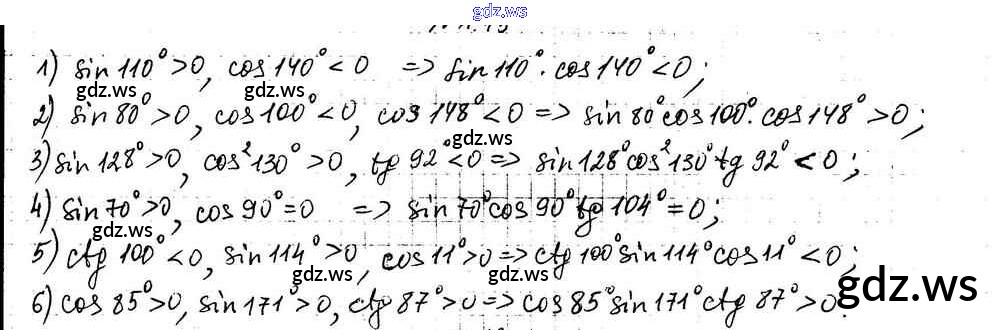 gdz.ws
1) sin 110° > 0, cos 140° < 0 => sin 110° · cos 140° < 0;
gdz.ws gdz.ws
2) sin 80° > 0, cos 100° < 0, cos 148° < 0 => sin 80° cos 100° · cos 148° > 0;
gdz.ws
3) sin 128° > 0, cos² 130° > 0, tg 92° < 0 => sin 128° cos² 130° tg 92° < 0;
4) sin 70° > 0, cos 90° = 0 => sin 70° cos 90° tg 104° = 0;
gdz.ws gdz.ws
5) ctg 100° < 0, sin 114° > 0, cos 11° > 0 => ctg 100° sin 114° cos 11° < 0;
gdz.ws
6) cos 85° > 0, sin 171° > 0, ctg 87° > 0 => cos 85° sin 171° ctg 87° > 0.
gdz.ws